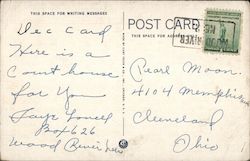 THIS SPACE FOR WRITING MESSAGES
POST CARD
THIS SPACE FOR AD
Dec Card
Here is a
Court house
for you
Box 626
Wood River
Pearl Moon
4104 Memphis
Cleveland
Ohio
RIVER